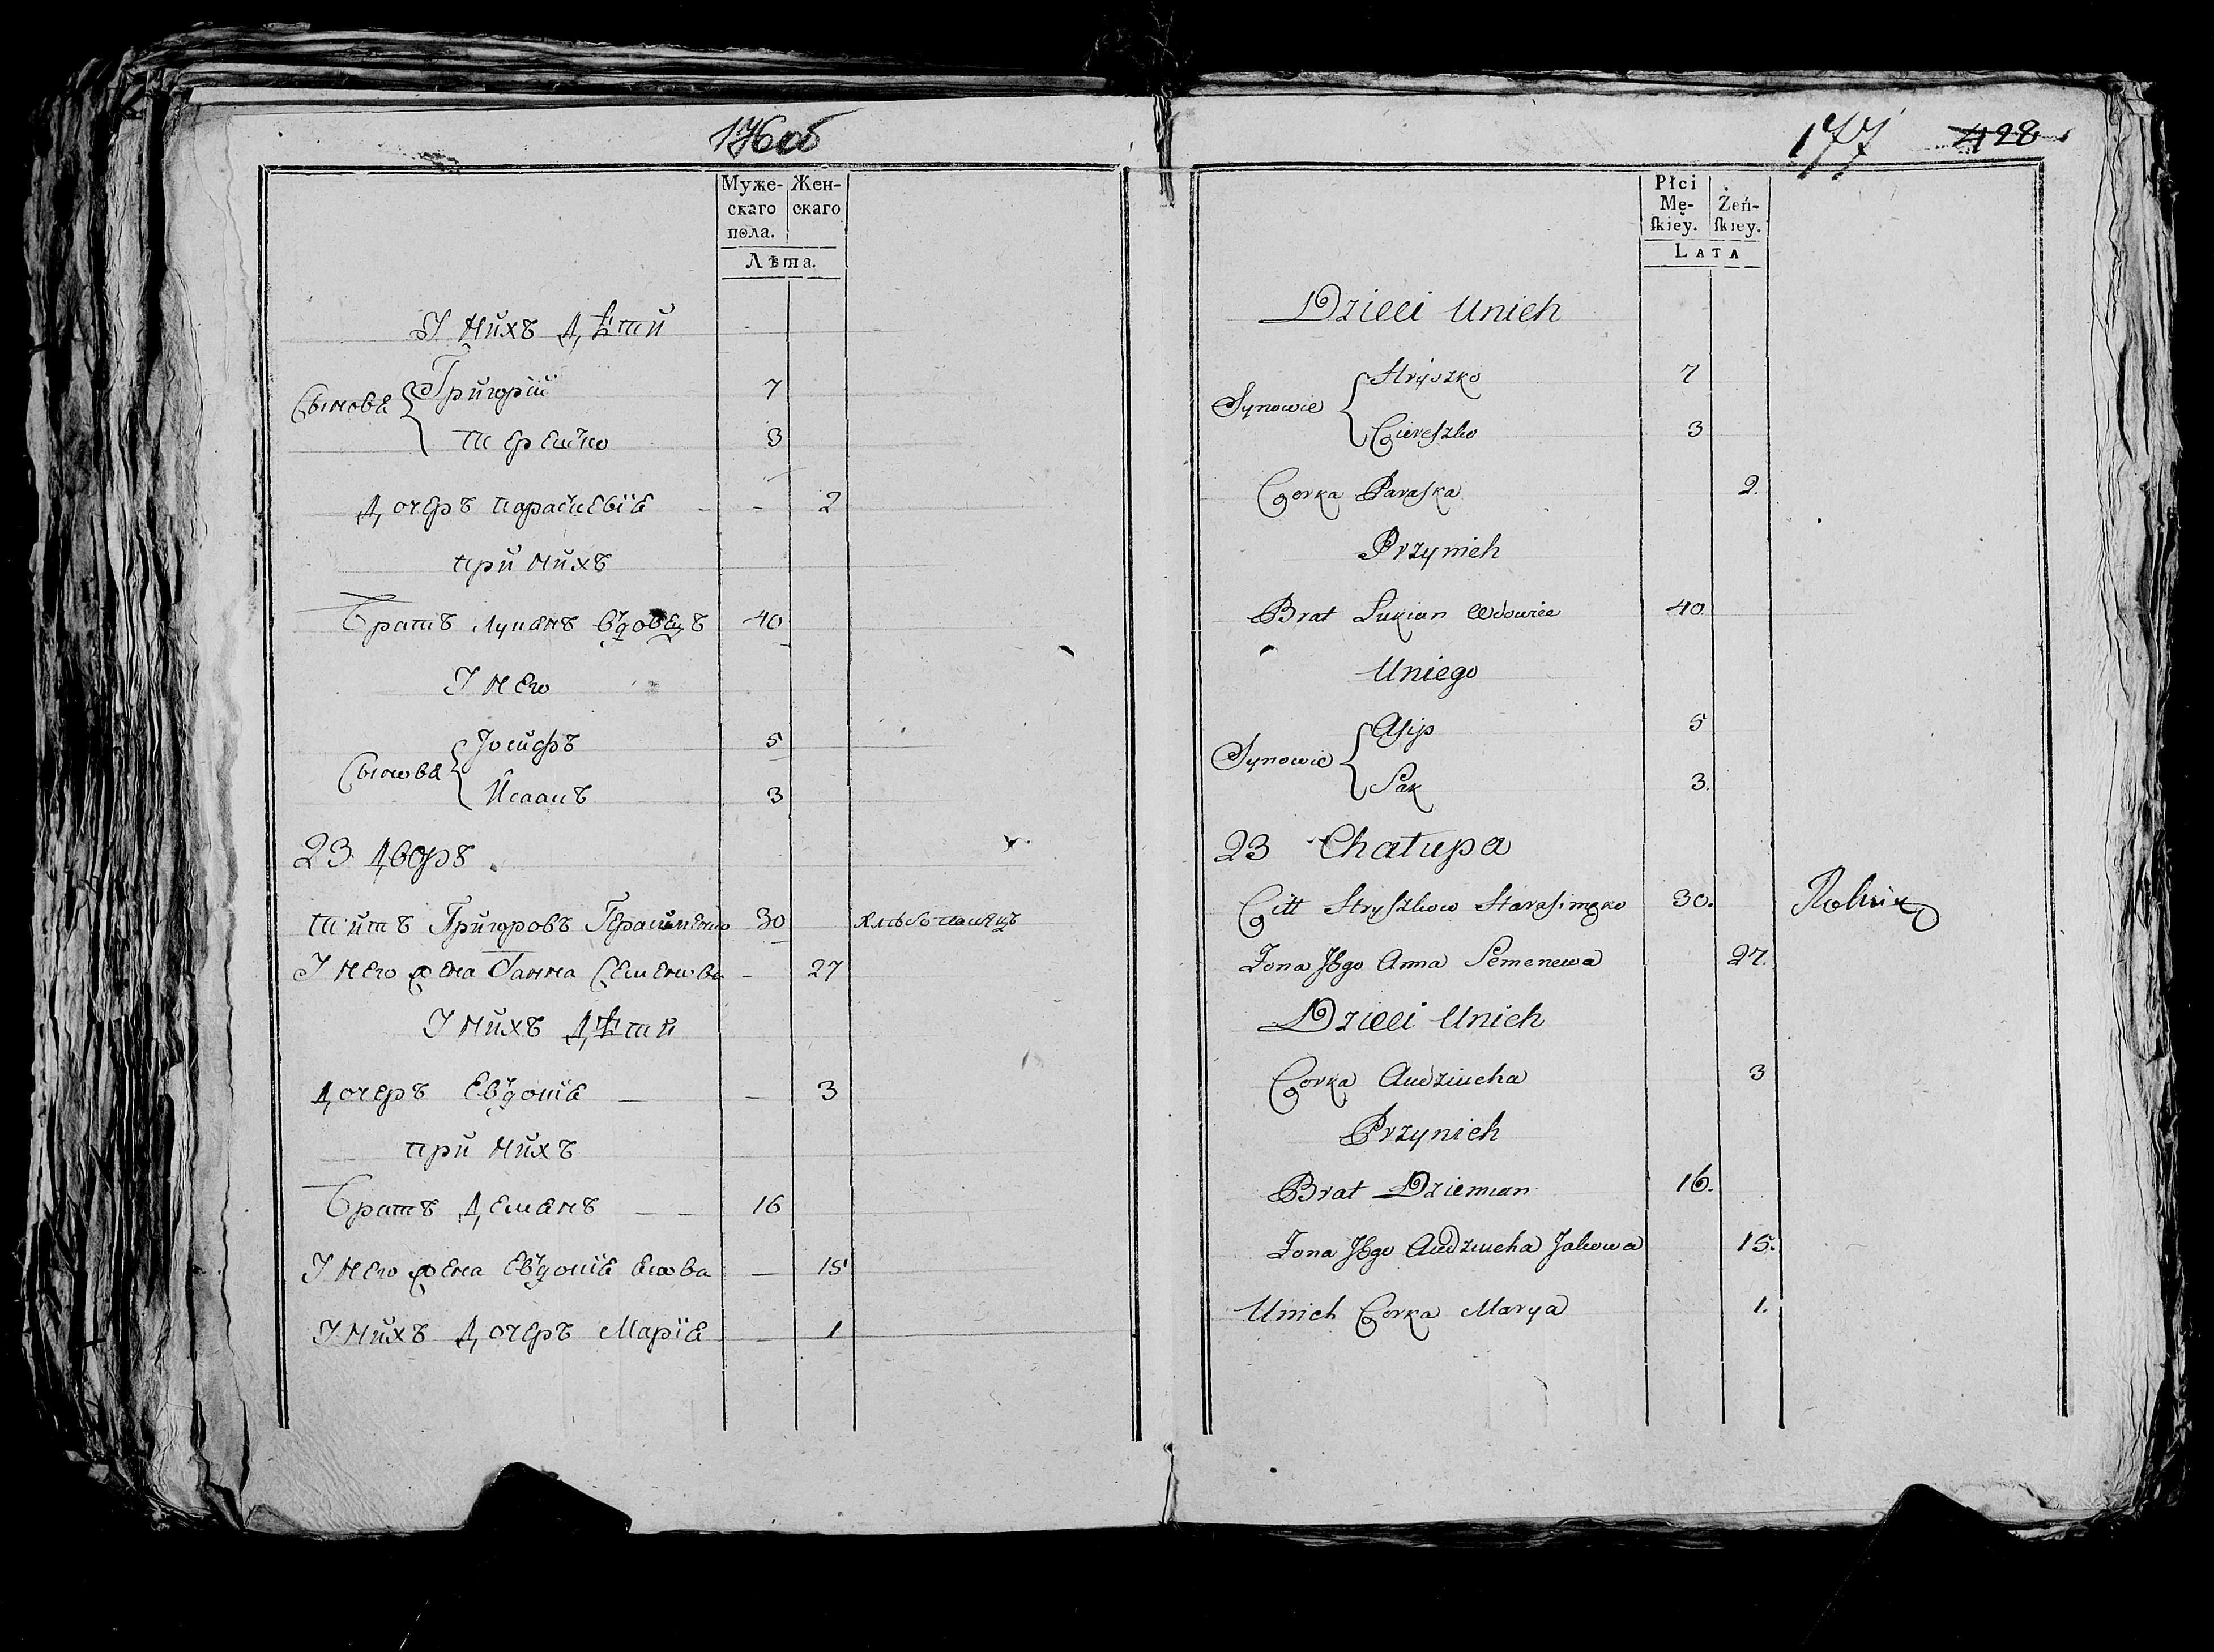 176об
Муже- Жен-
скаго скаго
пола.
Лѣта.
У нихъ дѣтй
Сынове Григорій 7
терешко 3
дочеръ параскевiе - - 2
прй нйхъ
Братъ Лукѧнъ вдовецъ 40
У него
Сынове Іосифъ 5
Исаакъ 3
23 дворъ
тйтъ Григоровъ Герасименко 30 хлѣбопашецъ
У него жена Ганна Семенова - 27
У нихъ дѣтй
дочеръ Евдокіе — - 3
прй нйхъ
Братъ демѧнъ — — 16
У него жена Евдокіе Ѧкова — 15
У нихъ дочеръ Маріе — 1
177 428
Płci
Mę- Żeń-
ſkiey. ſkiey.
LATA
Dzieci Unich
Synowie Hryszko 7
Ciereſzko 3
Corka Paraſka 2.
Przynich
Brat Lukian Wdowiec 40
Uniego
Synowie Asip 5
Sak 3.
23 Chatupa
Citt Hryſzkow Harasimęko 30. Rolnik
Zona Jego Anna Semenewa 27.
Dzieci Unich
Corka Audziucha 3
Przynich
Brat Dziemian 16.
Zona Jego Audziucha Jakowa 15.
Unich Corka Marya 1.